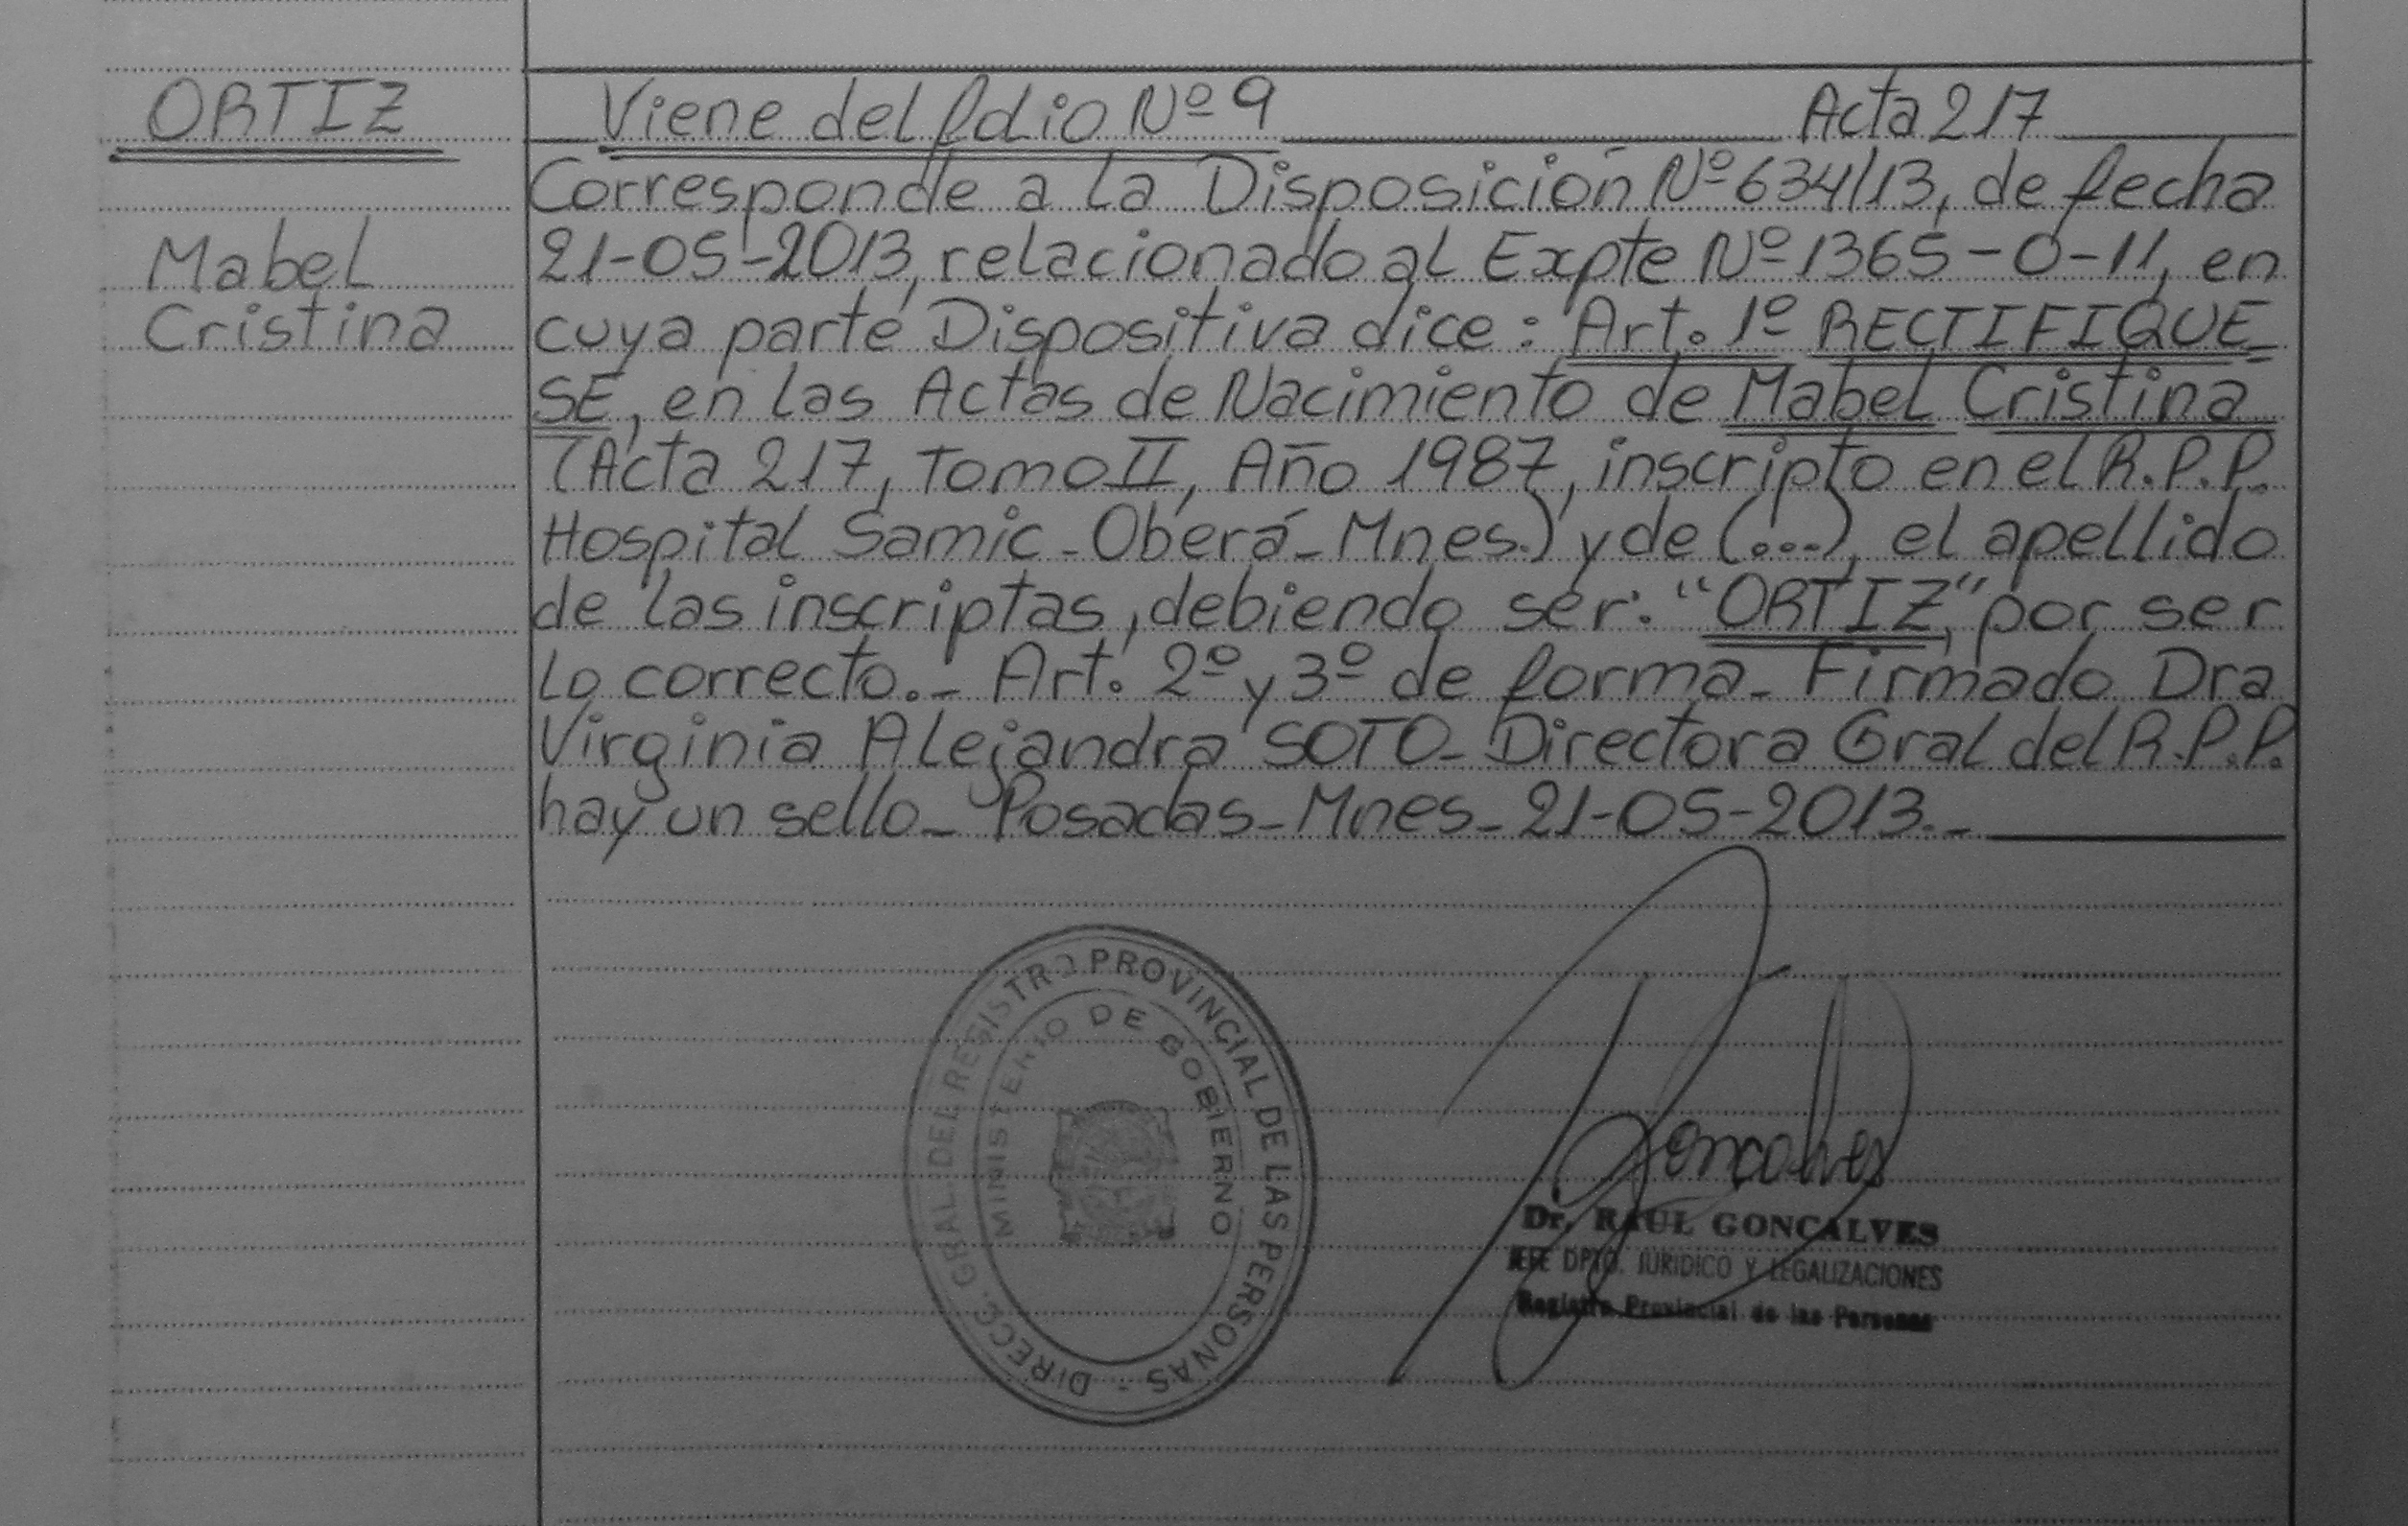 ORTIZ
Mabel
Cristina
Viene del folio Nº 9 Acta 217
Corresponde a la Disposición Nº 634/13, de fecha
21-05-2013, relacionado al Expte Nº 1365-O-11, en
cuya parte Dispositiva dice: Art. 1º RECTIFIQUE
SE, en las Actas de Nacimiento de Mabel Cristina
(Acta 217, Tomo II, Año 1987, inscripto en el R.P.P.
Hospital Samic - Oberá - Mnes.) y de (...), el apellido
de las inscriptas, debiendo ser: "ORTIZ", por ser
lo correcto.- Art. 2º y 3º de forma - Firmado Dra
Virginia Alejandra SOTO - Directora Gral del R.P.P.
hay un sello - Posadas - Mnes - 21-05-2013.-
DIRECC. GRAL. DEL REGISTRO PROVINCIAL DE LAS PERSONAS -
MINISTERIO DE GOBIERNO
Goncalves
Dr. RAUL GONCALVES
JEFE DPTO. JURIDICO Y LEGALIZACIONES
Registro Provincial de las Personas